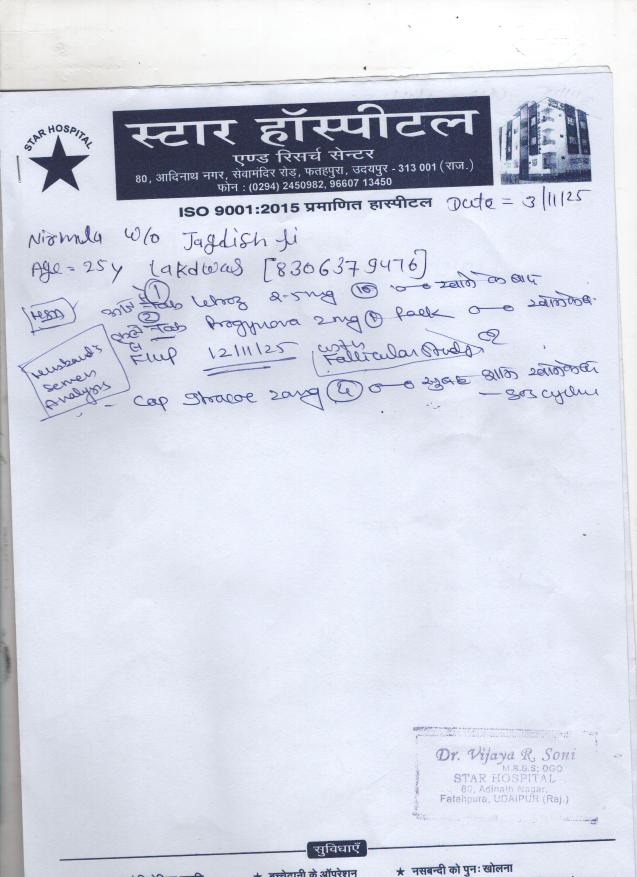 STAR HOSPITAL
स्टार हॉस्पीटल
एण्ड रिसर्च सेन्टर
80, आदिनाथ नगर, सेवामंदिर रोड, फतहपुरा, उदयपुर - 313 001 (राज.)
फोन : (0294) 2450982, 96607 13450
ISO 9001:2015 प्रमाणित हास्पीटल
Date = 3/11/25
Nirmala w/o Jagdish Ji
Age = 25y Lakdwas [8306379476]
1 Tab 2.5mg खाने के बाद
2 Tab Progynova 2mg Pack
F/up 12/11/25 with Follicular Study
Husband's
Semen
Analysis
Cap 20mg सुबह शाम
Dr. Vijaya R. Soni
M.B.B.S; DGO
STAR HOSPITAL
80, Adinath Nagar,
Fatehpura, UDAIPUR (Raj.)
सुविधाएँ
★ बच्चेदानी के ऑपरेशन
★ नसबन्दी को पुनः खोलना